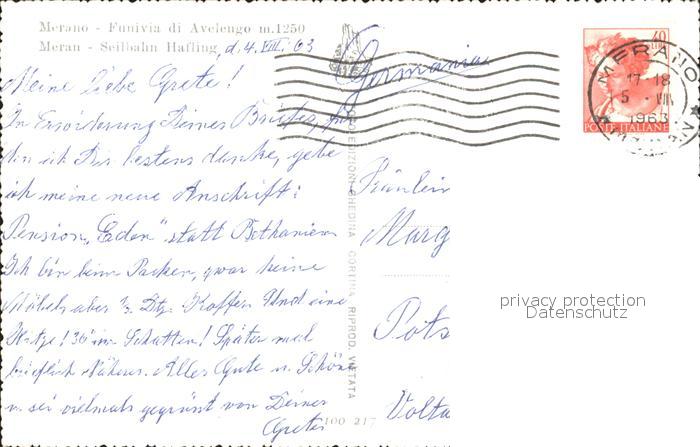 Merano - Funivia di Avelengo m.1250
Meran - Seilbahn Hafling
d. 4. VIII. 63
Meine liebe Grete!
In Erwiderung Deines Briefes, für
den ich Dir bestens danke, gebe
ich meine neue Anschrift:
Pension „Eden" statt Bethanien
Ich bin beim Packen, zwar keine
Möbel, aber ½ Dtz. Koffer. Und eine
Hitze! 36° im Schatten! Später mal
brieflich Näheres. Alles Gute u. Schöne
u. sei vielmals gegrüsst von Deiner
Grete
Germania
Fräulein
Marg
Pots
Volta
EDIZIONI GHEDINA CORTINA RIPROD. VIETATA
100 217
40
POSTE ITALIANE
MERANO
17-18
5 . VIII
1963
privacy protection
Datenschutz